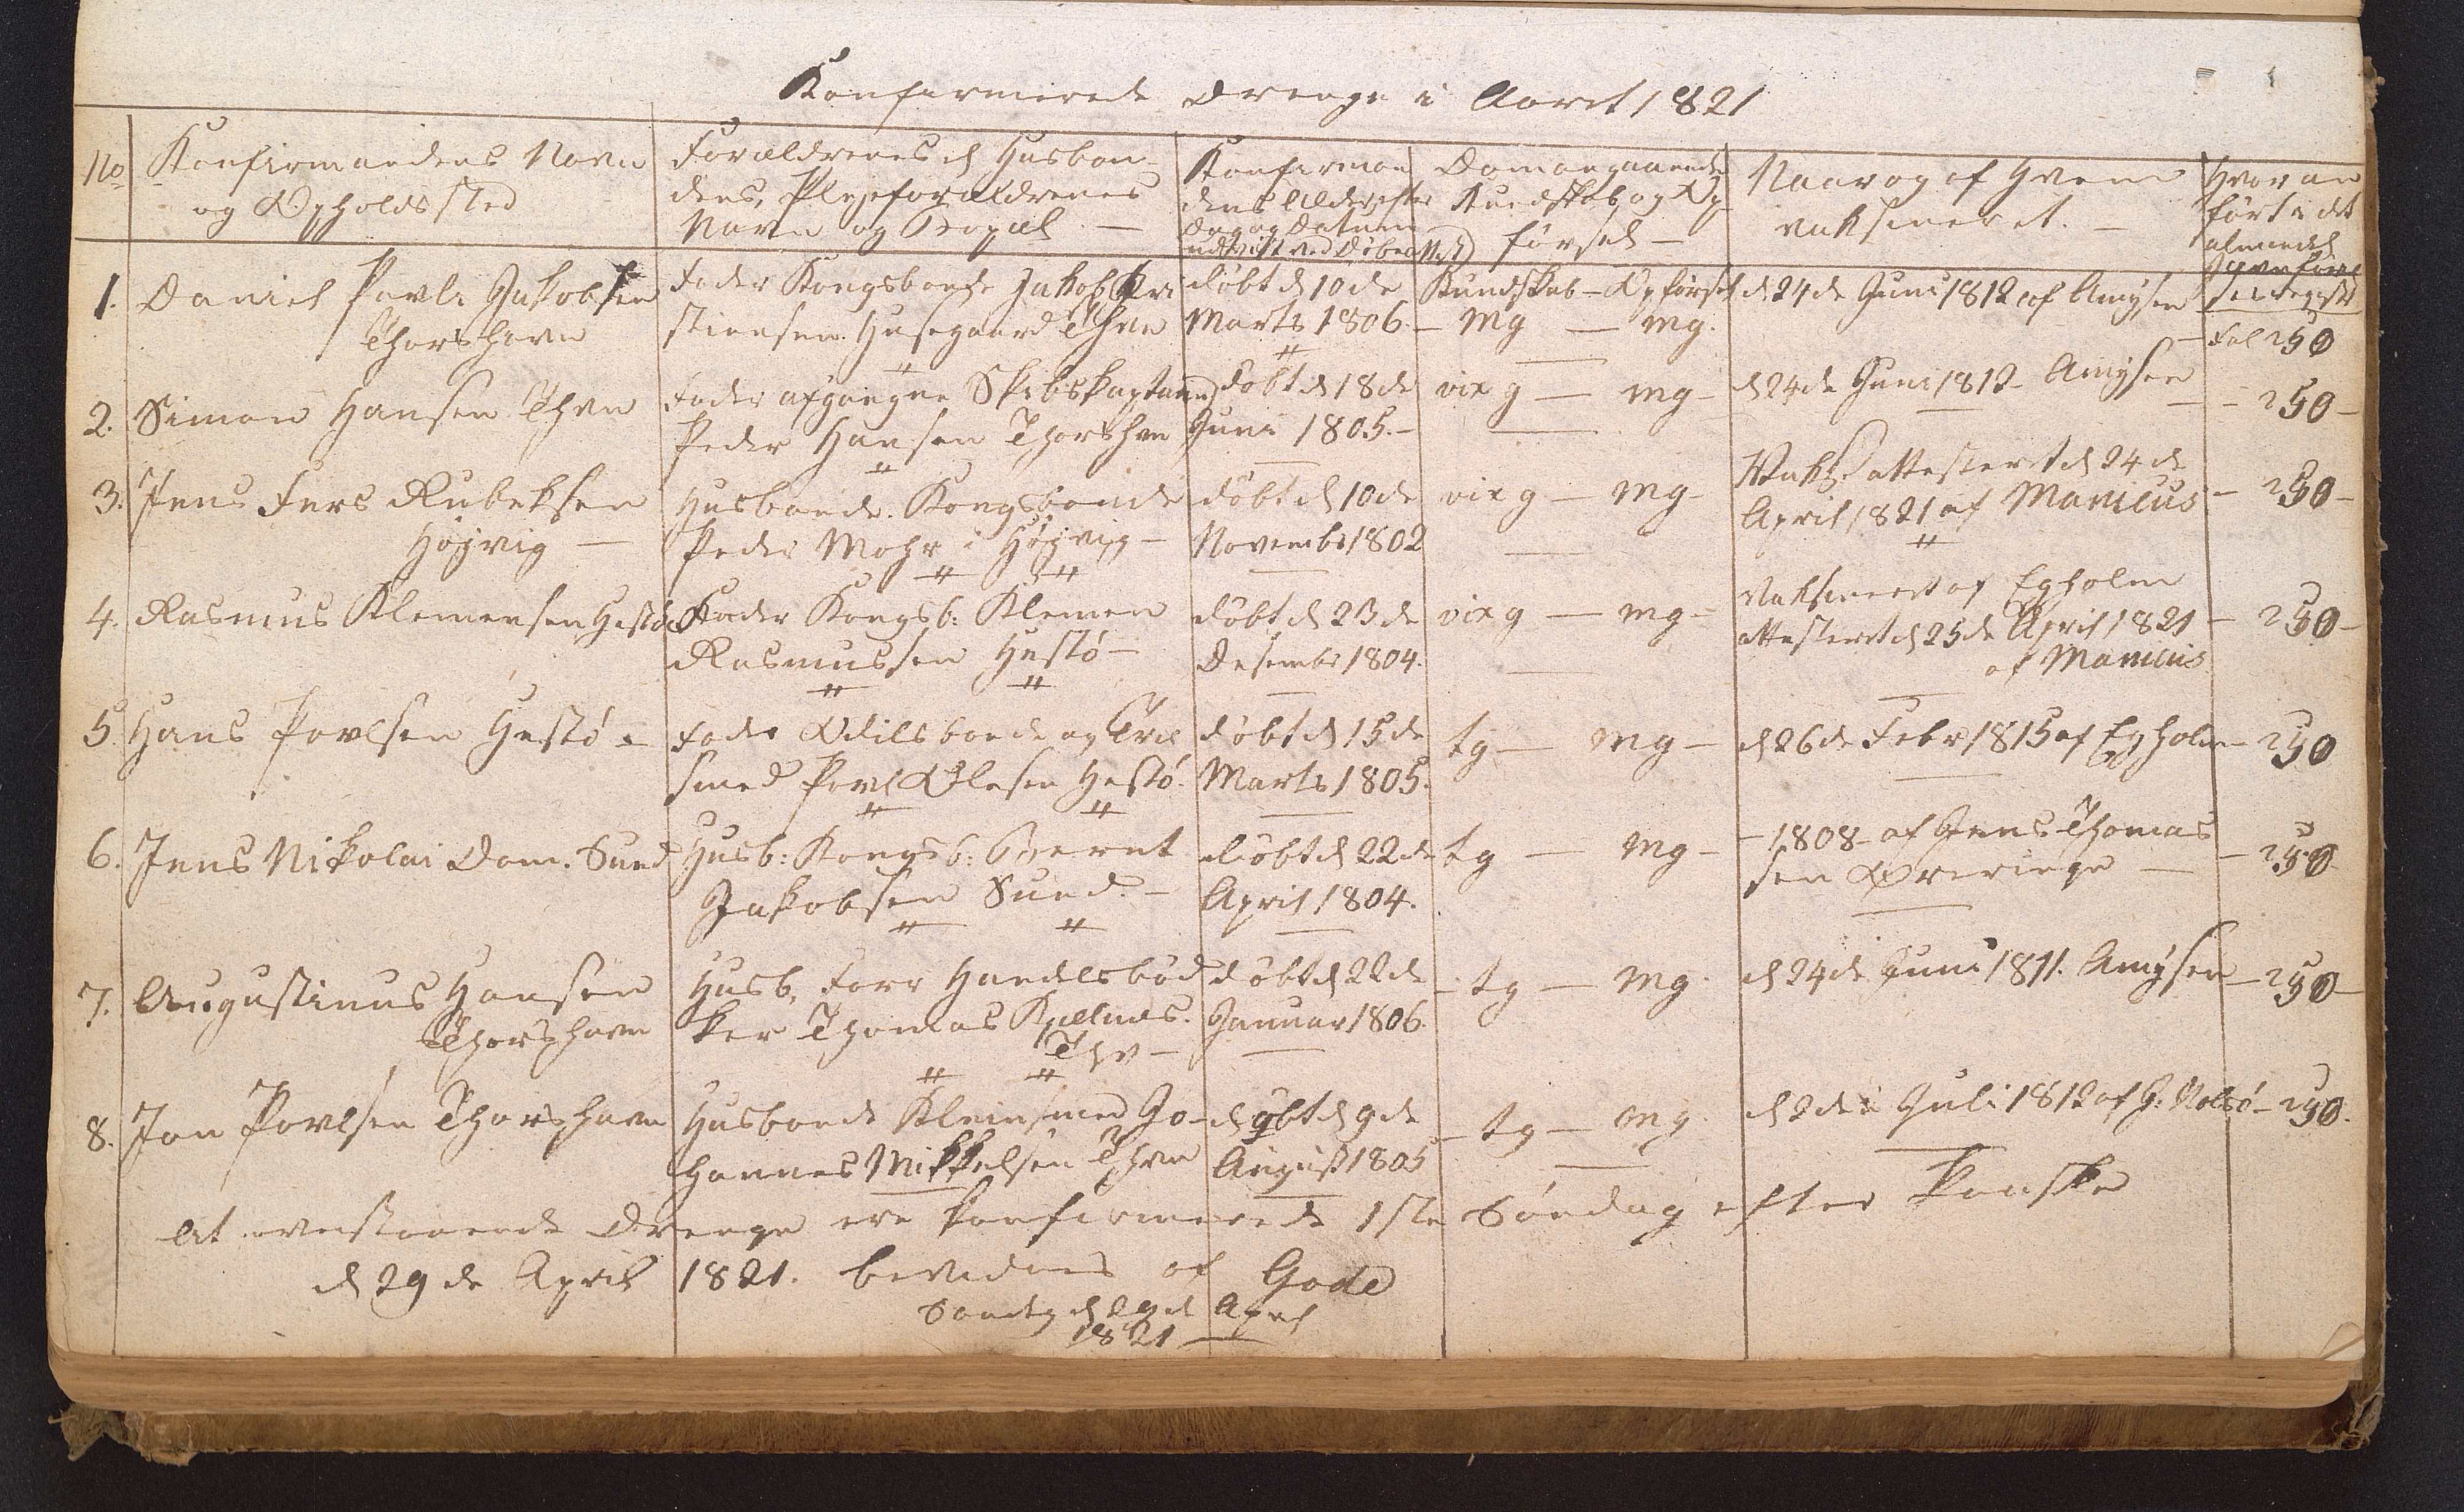 Konfirmerede Drenge i Aaret 1821
No Konfirmandens Navn
og Opholdssted
Forældrenes el Husbon-
dens, Plejeforældrenes
Navn og Bopæl —
Konfirman
dens Alder efter
Dag og Datum
udviist ved Døbeattest
Dom angaaende
Kundskab og Op
førsel —
Naar og af Hvem
vaksineret. —
Hvor an
ført i det
almindel
Jevnførel
ses register
1. Daniel Povli Jakobsen
Thorshavn
Fader Kongsbonde Jakob Kri
stiensen. Husegaard Thvn
døbt d 10de
Marts 1806.
Kundskab — Opførsel
— mg — mg.
d 24de Juni 1812 af Amysen
— Fol 250
2. Simon Hansen Thvn
Fader afgangne Skibskaptain
Peder Hansen Thorshvn
døbt d 18de
Juni 1805. —
vix g — mg —
d 24de Juni 1812 — Amysen
— 250 —
3. Jens Fers Rubeksen
Højvig —
Husbonde. Kongsbonde
Peder Mohr i Højvig —
døbt d 10de
Novembr 1802
vix g — mg —
Vaks. attesteret d 24de
April 1821 af Manicus
— 250 —
4. Rasmus Klemensen Hestø
Fader Kongsb: Klemen
Rasmussen Hestø —
døbt d 23de
Desembr 1804.
vix g — mg —
Vaksineert af Egholm
attesteret d 25de April 1821
af Manicus
— 250 —
5. Hans Povlsen Hestø —
Fader Odilsbonde og Træ
smed Povl Olesen Hestø.
døbt d 15de
Marts 1805.
tg — mg —
d 26de Febr 1815 af Egholm
— 250
6. Jens Nikolai Dom. Sund
Husb: Kongsb: Berent
Jakobsen Sund. —
døbt d 22de
April 1804.
tg — mg —
— 1808 — af Jens Thomas
sen Øreringe —
— 250
7. Augustinus Hansen
Thorshavn
Husb, Forr Handelsbød
ker Thomas Kjelnes.
Thv —
døbt d 22de
Januar 1806.
— tg — mg.
d 24de Juni 1811. Amysen
— 250 —
8. Jon Povlsen Thorshavn
Husbonde Kleinsmed Jo-
hannes Mikkelsen Thvn
døbt d 9de
August 1805
— tg — mg.
d 2de Juli 1812 af J. Nolsø
— 250.
At ovenstaaende Drenge ere konfirmerede 1ste Søndag efter Paaske
d 29de April 1821. bevidnes af Gade
Søndag d 29de April
1821 —